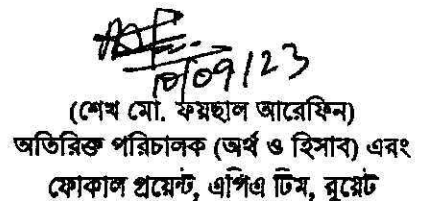 10/09/23
(শেখ মো. ফয়ছাল আরেফিন)
অতিরিক্ত পরিচালক (অর্থ ও হিসাব) এবং
ফোকাল প্রয়েন্ট, এপিএ টিম, রুয়েট